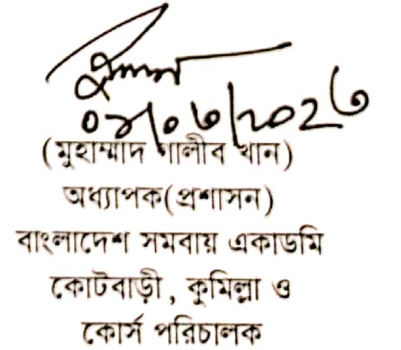 (মুহাম্মাদ গালীব খান)
অধ্যাপক(প্রশাসন)
বাংলাদেশ সমবায় একাডমি
কোটবাড়ী, কুমিল্লা ও
কোর্স পরিচালক